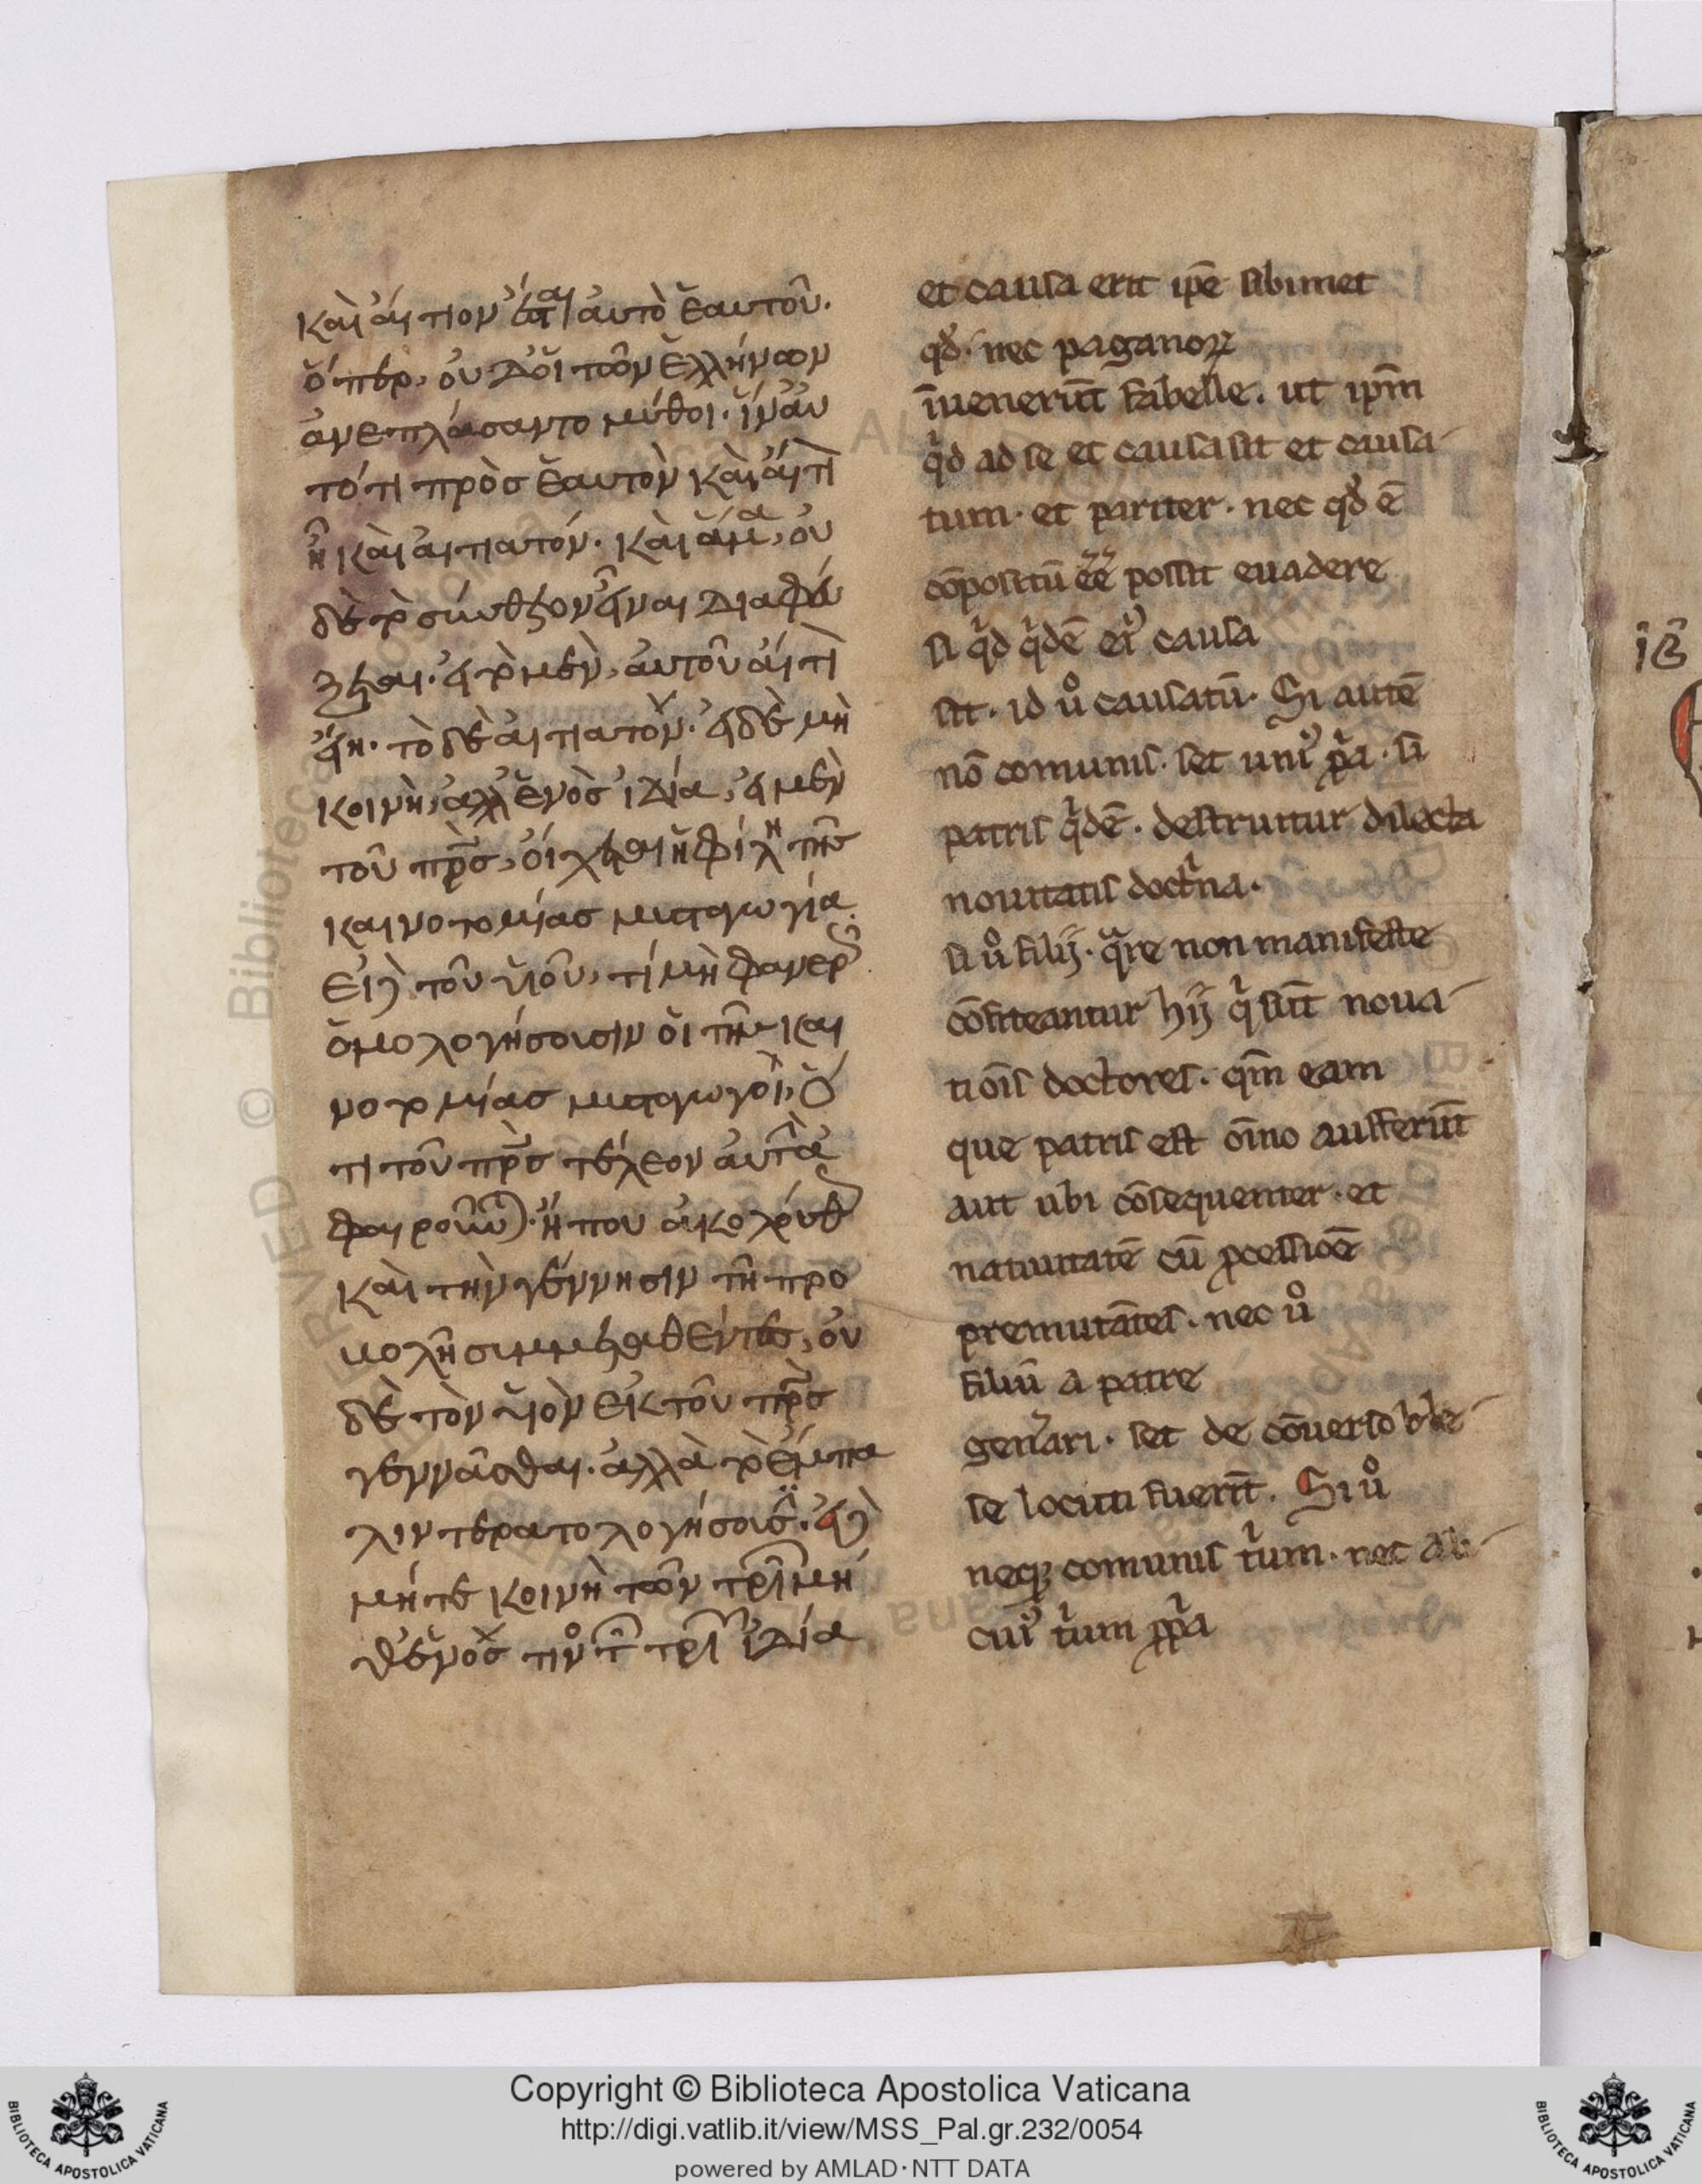 καὶ αἴτιον ἔσται αὐτὸ ἑαυτοῦ.
ὅπερ, οὐδ οἱ τῶν ἑλλήνων
ἀνεπλάσαντο μύθοι. ἵν αὐ
τό τι πρὸσ ἑαυτὸν καὶ αἴτι
ῆ καὶ αἰτιατόν. καὶ ἅμα, οὐ
δὲ τὸ σύνθετον εἶναι διαφεύ
ξεται. εἰ τὸ μὲν, αὐτοῦ αἴτι
εἴη. τὸ δὲ αἰτιατόν. εἰ δὲ μὴ
κοινὴ, ἀλλ ἑνὸσ ἰδία, εἰ μὲν
τοῦ πρσ, οἴχεται ἡ φίλη τῆς
καινοτομίασ μυσταγωγία.
Εἰ δὲ τοῦ υἱοῦ, τί μὴ φανερῶς
ὁμολογήσουσιν οἱ τῆς και
νοτομίασ μυσταγωγοὶ, ὅ
τι τοῦ πρσ τέλεον αὐτὰ
φαιροῦνται. ἤ που ἀκολούθως
καὶ τὴν γέννησιν τῆ προ
βολῆ συμμεταθέντες, οὐ
δὲ τὸν υἱὸν ἐκ τοῦ πρσ
γεννᾶσθαι. ἀλλὰ τὸ ἔμπα
λιν τερατολογήσουσιν. εἰ δὲ
μήτε κοινὴ τῶν τριῶν μή
θ ἑνὸσ τινο τῶν τριῶν ἰδία
et causa erit ip̄e sibimet
qd̓. nec paganoꝝ
īuenerūt fabelle. ut ip̄m
qͥd ad se et causa sit et causa-
tum. et pariter. nec qd̓ ē
cōpositū ēē possit euadere
si qͥd qͥdē eiꝰ causa
sit. id uͦ causatū. Si autē
nō comunis. set uniꝰ ꝓpͥa. si
patris qͥdē. destruitur dilecta
nouitatis doctͥna.
si uͦ filij. qͣre non manifeste
cōfiteantur hij qͥ sūt noua-
tiōīs doctores. qm̄ eam
que patris est oīno aufferūt
aut ubi cōsequenter. et
natiuitatē cū ꝓcessiōē
premutātes. nec uͦ
filiū a patre
gen̓ari. set de cōuerso
se locuti fuerīt. Si uͦ
neqꝫ comunis tͥum. nec ali-
cuiꝰ tͥum ꝓpͥa
ιβ
Copyright © Biblioteca Apostolica Vaticana
http://digi.vatlib.it/view/MSS_Pal.gr.232/0054
powered by AMLAD·NTT DATA
BIBLIOTECA APOSTOLICA VATICANA
BIBLIOTECA APOSTOLICA VATICANA